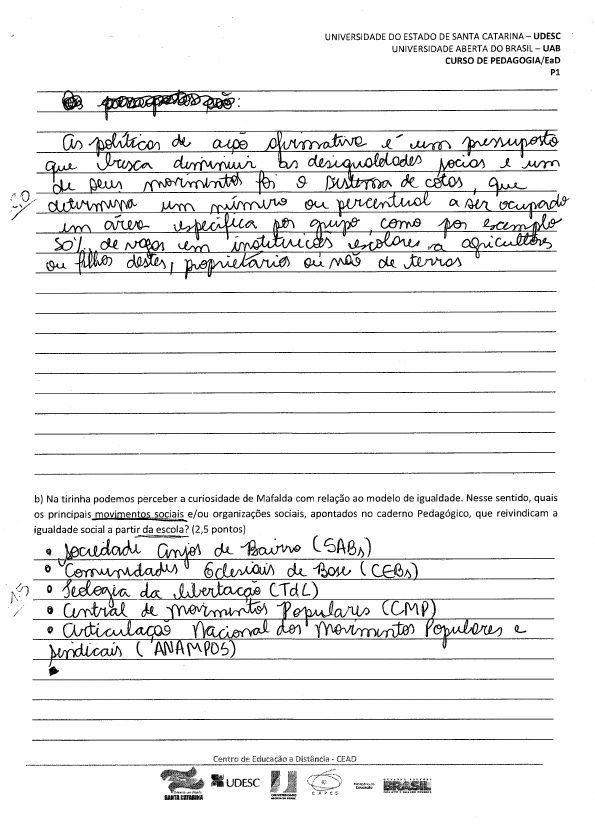 UNIVERSIDADE DO ESTADO DE SANTA CATARINA – UDESC
UNIVERSIDADE ABERTA DO BRASIL – UAB
CURSO DE PEDAGOGIA/EaD
P1
As políticas de ação afirmativa é um pressuposto
que busca diminuir as desigualdades sociais e um
de seus movimentos foi o sistema de cotas, que
determina um número ou percentual a ser ocupado
em área específica por grupo, como por exemplo
50% de vagas em instituicões escolares a agricultores
ou filhos destes, proprietários ou não de terras
b) Na tirinha podemos perceber a curiosidade de Mafalda com relação ao modelo de igualdade. Nesse sentido, quais
os principais movimentos sociais e/ou organizações sociais, apontados no caderno Pedagógico, que reivindicam a
igualdade social a partir da escola? (2,5 pontos)
• Sociedade Anjos de Bairro (SABs)
• Comunidades Eclesiais de Base (CEBs)
• Teologia da libertação (TdL)
• Central de Movimentos Populares (CMP)
1,5
• Articulação Nacional dos Movimentos Populares e
sindicais (ANAMPOS)
Centro de Educação a Distância - CEAD
SANTA CATARINA
UDESC
UNIVERSIDADE
CAPES
Ministério da Educação
BRASIL